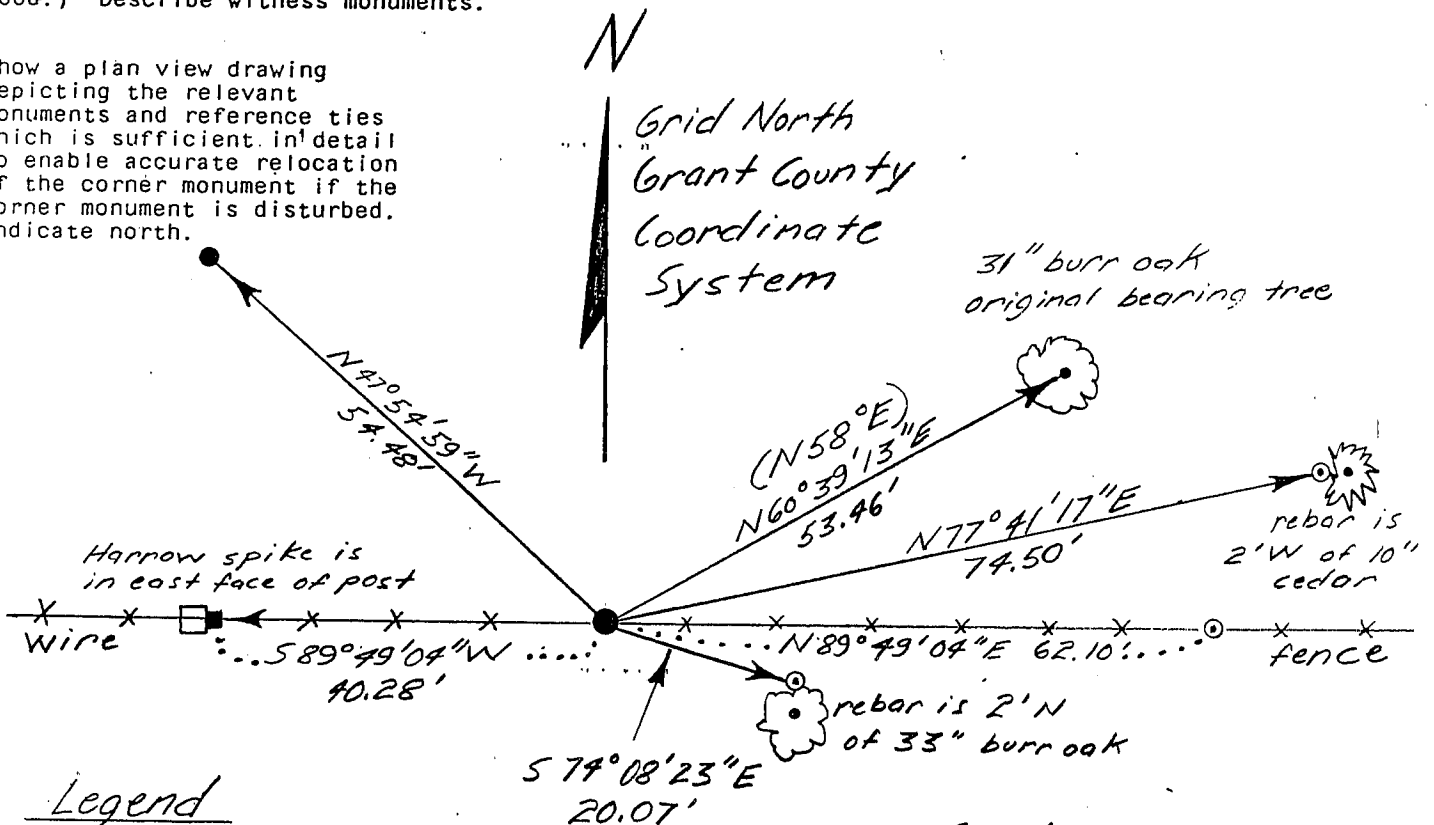 Describe witness monuments.
how a plan view drawing
epicting the relevant
onuments and reference ties
hich is sufficient in detail
o enable accurate relocation
f the corner monument if the
orner monument is disturbed.
ndicate north.
N
Grid North
Grant County
Coordinate
System
31" burr oak
original bearing tree
N47°54'59"W
54.48'
(N58°E)
N60°39'13"E
53.46'
N77°41'17"E
74.50'
rebar is
2'W of 10"
cedar
Harrow spike is
in east face of post
wire
S89°49'04"W
40.28'
N89°49'04"E 62.10'
fence
rebar is 2'N
of 33" burr oak
S74°08'23"E
20.07'
Legend